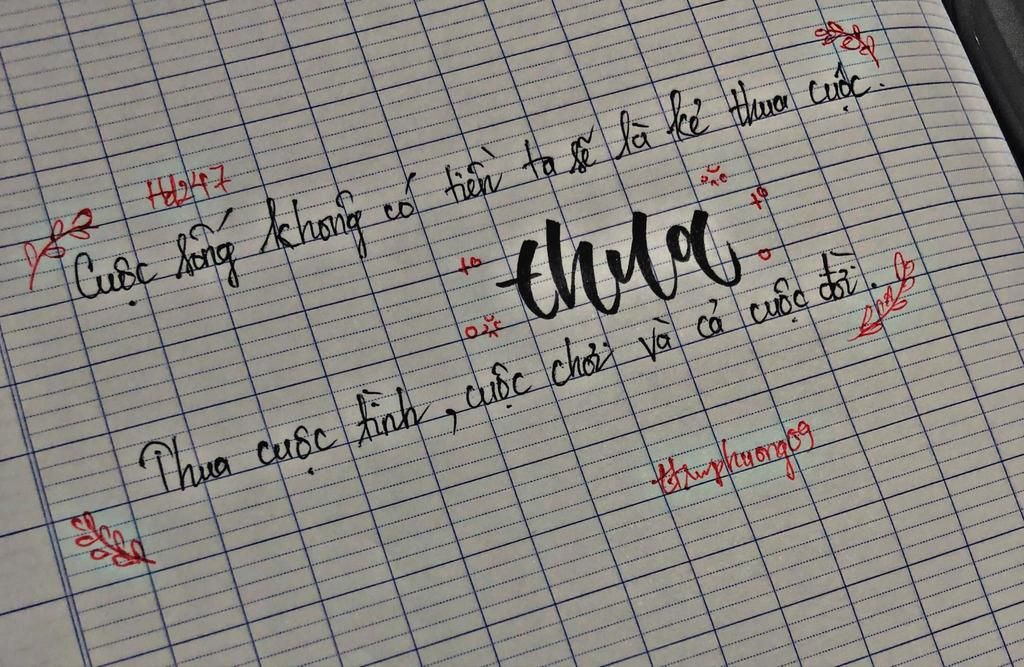 Hd247
Cuộc sống không có tiền ta sẽ là kẻ thua cuộc.
thua
Thua cuộc tình, cuộc chơi và cả cuộc đời.
thuphuong09